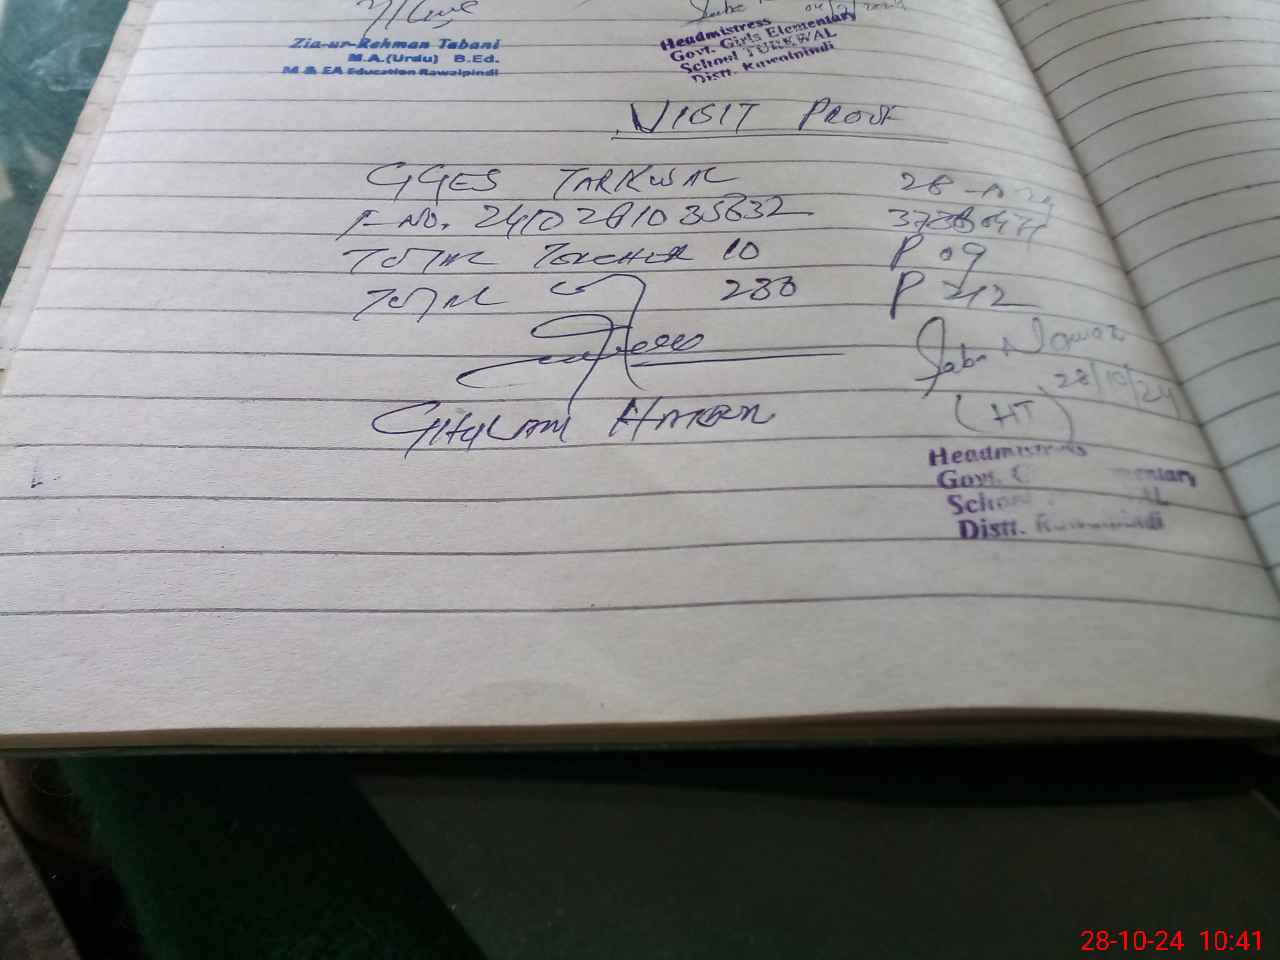 Zia-ur-Rehman Tabani
M.A.(Urdu) B.Ed.
M & EA Education Rawalpindi
Headmistress
Govt. Girls Elementary
School TURKWAL
Distt. Rawalpindi
VISIT PROOF
GGES TARKWAL 28-
F-NO. 2410281035832
TOTAL TEACHER 10 P 09
TOTAL P 212
Saba Nawaz
28/10/24
GHULAM
(HT)
Headmistress
Govt.
School
Distt. Rawalpindi
28-10-24 10:41